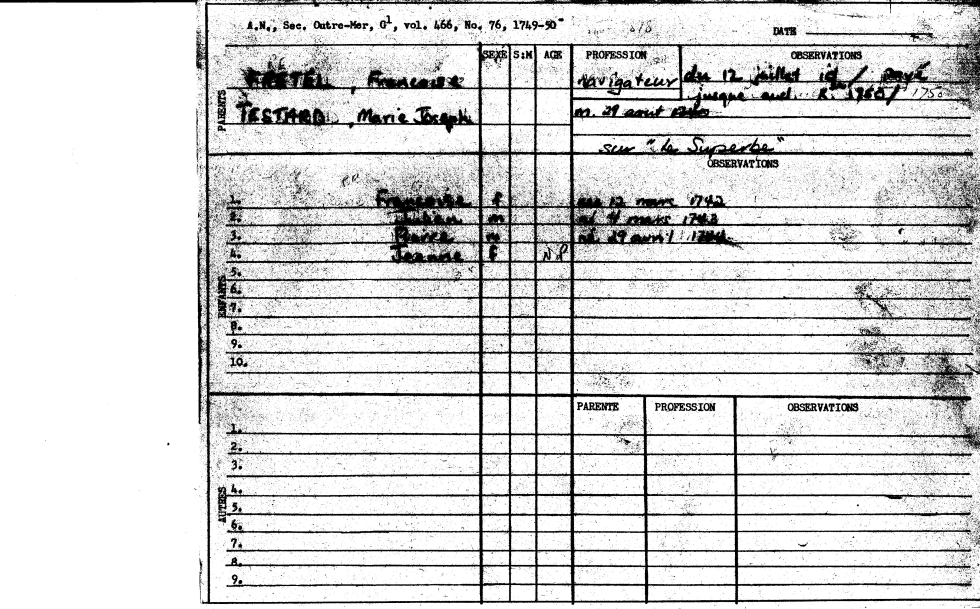 A.N., Sec. Outre-Mer, G¹, vol. 466, No. 76, 1749-50
DATE
SEXE S:M AGE PROFESSION OBSERVATIONS
PARENTS
FRETEL, Francoise Navigateur du 12 juillet / Payé
jusque 1750/ 1750
TESTARD, Marie Joseph m. 29 aout
sur "le Superbe"
OBSERVATIONS
ENFANTS
1. Francoise f 12 mars 1742
2. Julien m né 4 mars 1743
3. Pierre m né 29 avril
4. Jeanne f NP
5.
6.
7.
8.
9.
10.
PARENTE PROFESSION OBSERVATIONS
AUTRES
1.
2.
3.
4.
5.
6.
7.
8.
9.